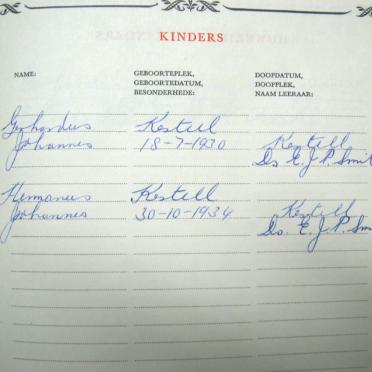 KINDERS
NAME: GEBOORTEPLEK, DOOPDATUM,
GEBOORTEDATUM, DOOPPLEK,
BESONDERHEDE: NAAM LERAAR:
Gerhardus Kestell
Johannes 18-7-1930 Kestell
Ds E.J.P. Smit
Hermanus Kestell
Johannes 30-10-1934 Kestell
Ds. E.J.P. Sm